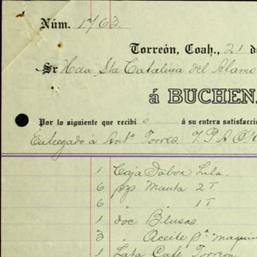 Núm. 1763.
Torreón, Coah., 21 d
Sr Hda Sta Catalina del Alamo
á BUCHEN
Por lo siguiente que recibí o á su entera satisfacci
Entregado á Antº Torres
1 Caja Jabon Lila.
6 pzs Manta 2T
6 " " 1T
1 doc Blusas
3 " Aceite pª maquin
1 Lata Café Torreon